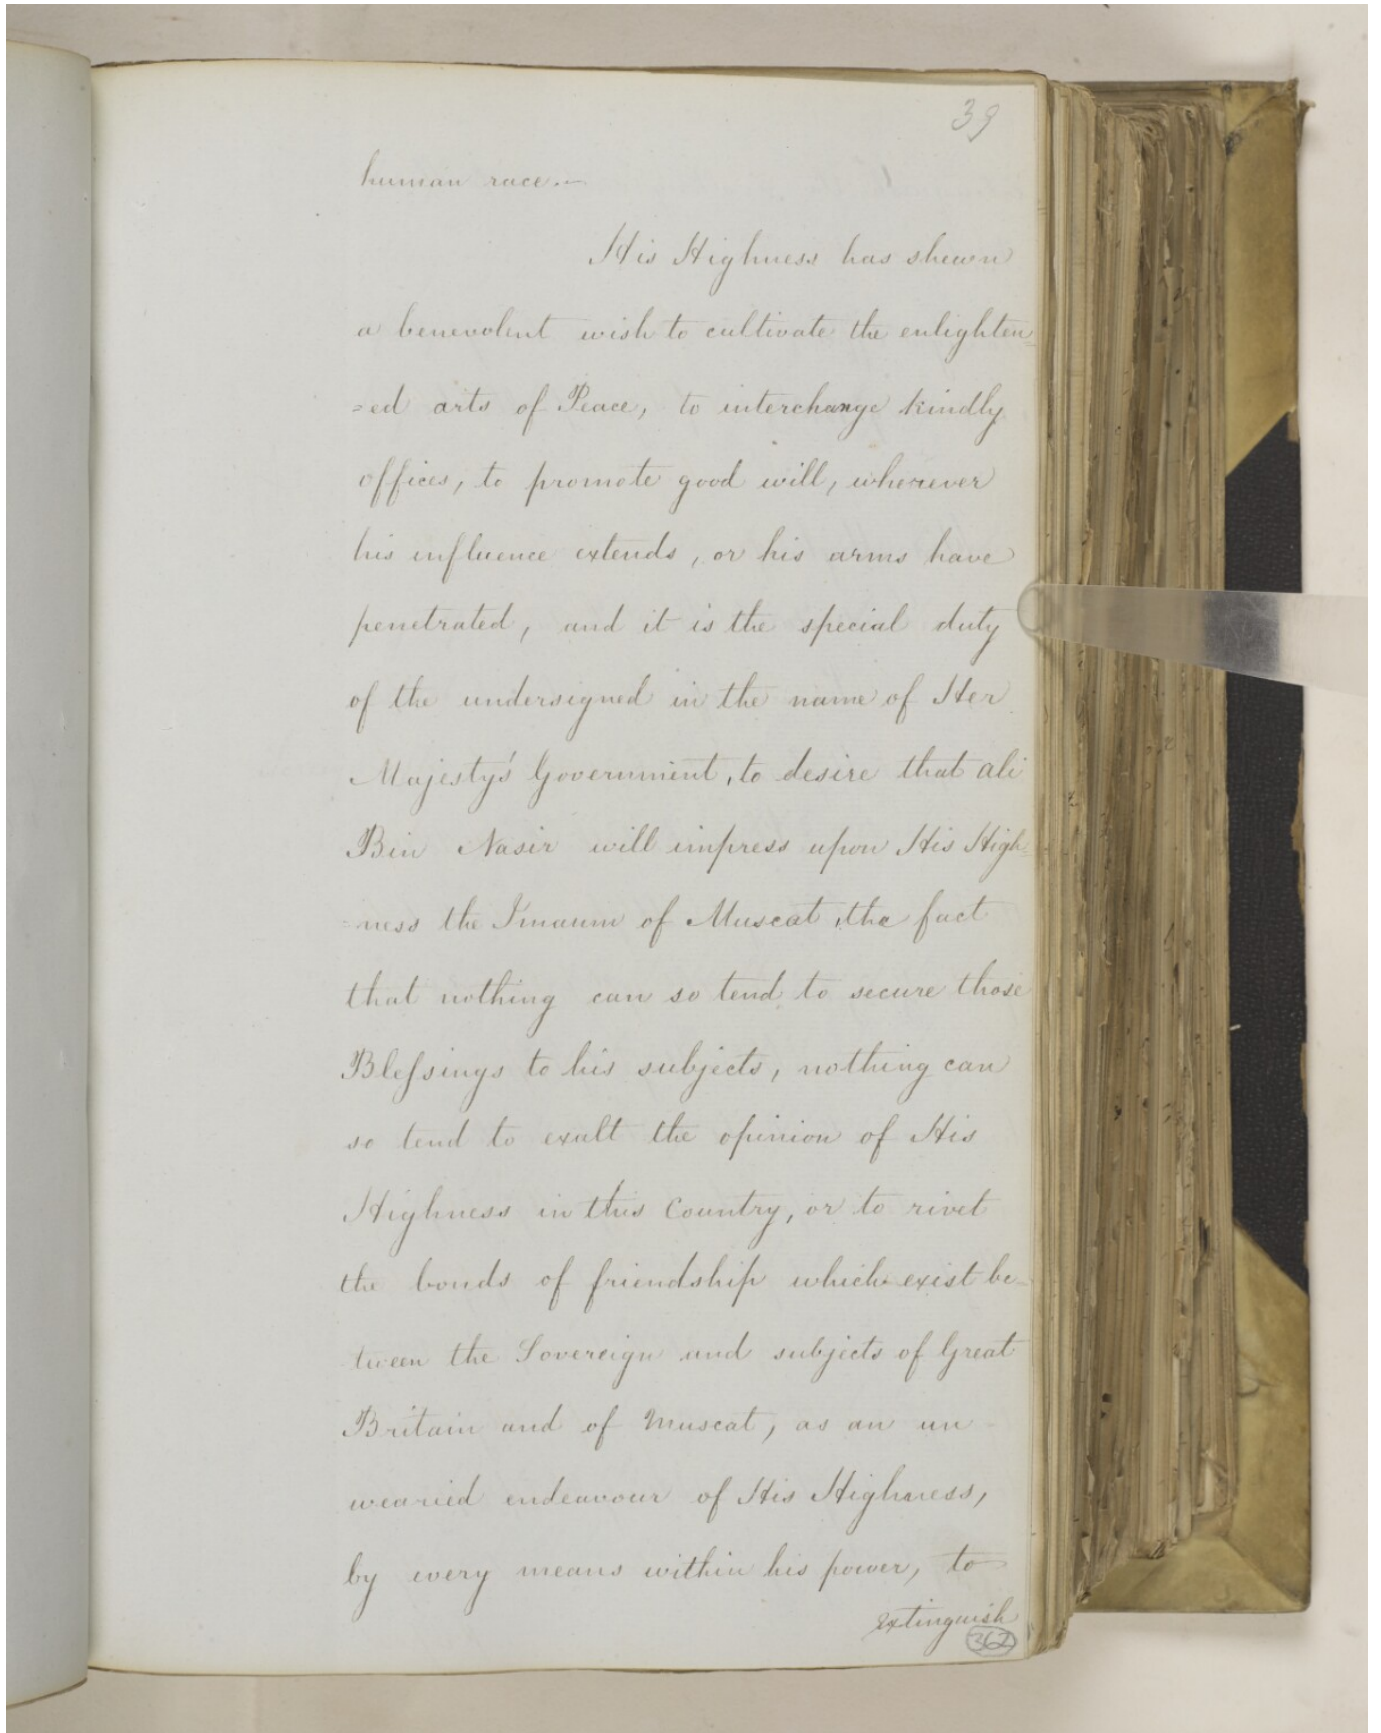 39
human race.—
His Highness has shewn
a benevolent wish to cultivate the enlighten=
=ed arts of Peace, to interchange kindly
offices, to promote good will, wherever
his influence extends, or his arms have
penetrated, and it is the special duty
of the undersigned in the name of Her
Majesty's Government, to desire that Ali
Bin Nasir will impress upon His High=
=ness the Imaum of Muscat, the fact
that nothing can so tend to secure those
Blefsings to his subjects, nothing can
so tend to exalt the opinion of His
Highness in this Country, or to rivet
the bonds of friendship which exist be-
tween the Sovereign and subjects of Great
Britain and of Muscat, as an un-
wearied endeavour of His Highness,
by every means within his power, to
extinguish
362